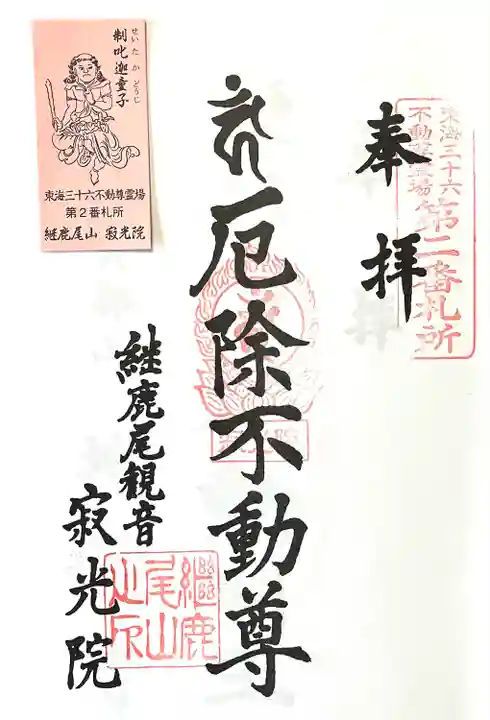 奉拝
東海三十六
不動尊霊場
第二番札所
厄除不動尊
継鹿尾観音
寂光院
継鹿
尾山
之印
せいたかどうじ
制吒迦童子
東海三十六不動尊霊場
第2番札所
継鹿尾山 寂光院